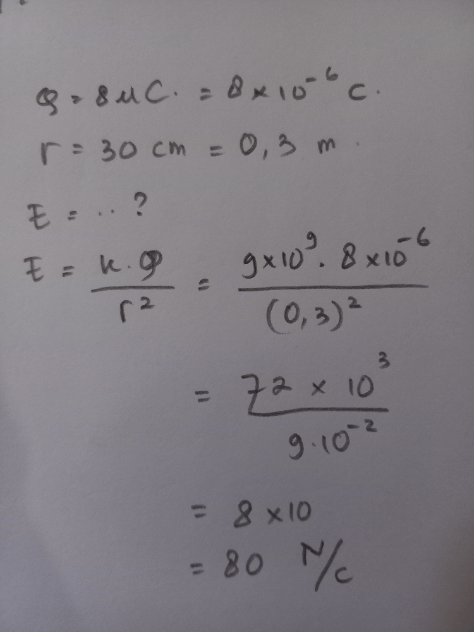 Q = 8 μC. = 8 × 10⁻⁶ C.
r = 30 cm = 0,3 m.
E = .. ?
E = k . Q / r² = 9×10⁹ . 8×10⁻⁶ / (0,3)²
= 72 × 10³ / 9.10⁻²
= 8 ×10
= 80 N/C